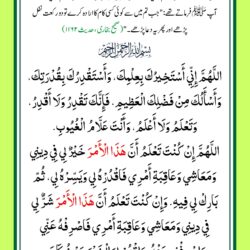 آپ ﷺ فرماتے تھے: "جب تم میں سے کوئی کسی کام کا ارادہ کرے تو دو رکعت نفل
پڑھے اور پھر یہ دعا پڑھے۔" (صحیح بخاری، حدیث ۱۱۶۲)
بِسْمِ اللّٰهِ الرَّحْمٰنِ الرَّحِيْمِ
اللَّهُمَّ إِنِّي أَسْتَخِيرُكَ بِعِلْمِكَ، وَأَسْتَقْدِرُكَ بِقُدْرَتِكَ،
وَأَسْأَلُكَ مِنْ فَضْلِكَ الْعَظِيمِ. فَإِنَّكَ تَقْدِرُ وَلَا أَقْدِرُ،
وَتَعْلَمُ وَلَا أَعْلَمُ، وَأَنْتَ عَلَّامُ الْغُيُوبِ.
اللَّهُمَّ إِنْ كُنْتَ تَعْلَمُ أَنَّ هَذَا الْأَمْرَ خَيْرٌ لِي فِي دِينِي
وَمَعَاشِي وَعَاقِبَةِ أَمْرِي فَاقْدُرْهُ لِي وَيَسِّرْهُ لِي، ثُمَّ
بَارِكْ لِي فِيهِ. وَإِنْ كُنْتَ تَعْلَمُ أَنَّ هَذَا الْأَمْرَ شَرٌّ لِي
فِي دِينِي وَمَعَاشِي وَعَاقِبَةِ أَمْرِي فَاصْرِفْهُ عَنِّي